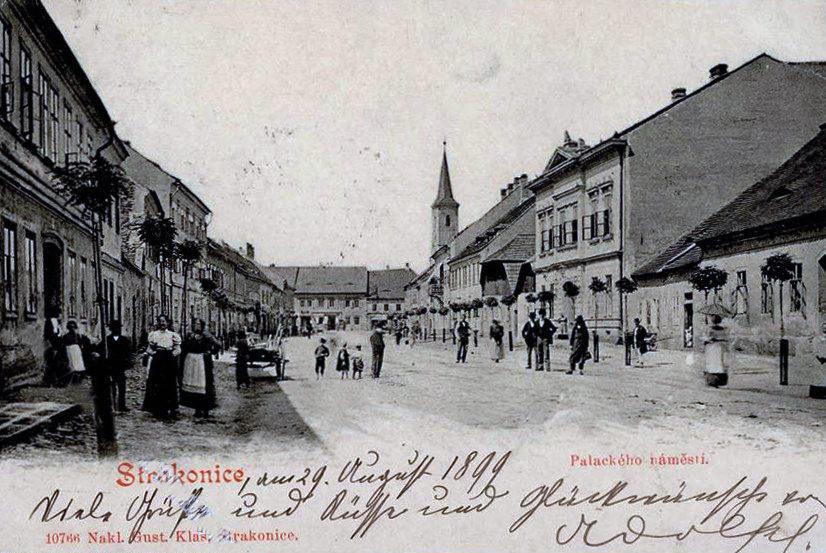 Strakonice am 29. August 1899
Palackého náměstí.
Viele Grüße und Küsse und Glückwünsche von
Adolf.
10766 Nakl. Gust. Klas, Strakonice.